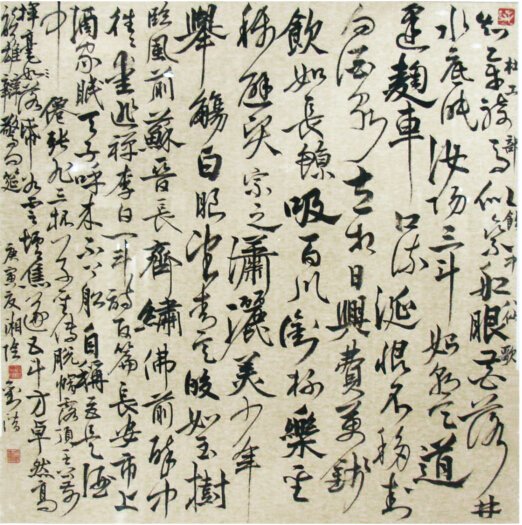 杜工部飲中八仙歌
知章騎馬似乘船眼花落井
水底眠汝陽三斗始朝天道
逢麴車口流涎恨不移封
向酒泉左相日興費萬錢
飲如長鯨吸百川銜杯樂聖
稱避賢宗之瀟灑美少年
舉觴白眼望青天皎如玉樹
臨風前蘇晉長齋繡佛前醉中
往往愛逃禪李白一斗詩百篇長安市上
酒家眠天子呼來不上船自稱臣是酒
中仙張旭三杯草聖傳脫帽露頂王公前
揮毫落紙如雲煙焦遂五斗方卓然高
談雄辯驚四筵
庚寅夏湘陰